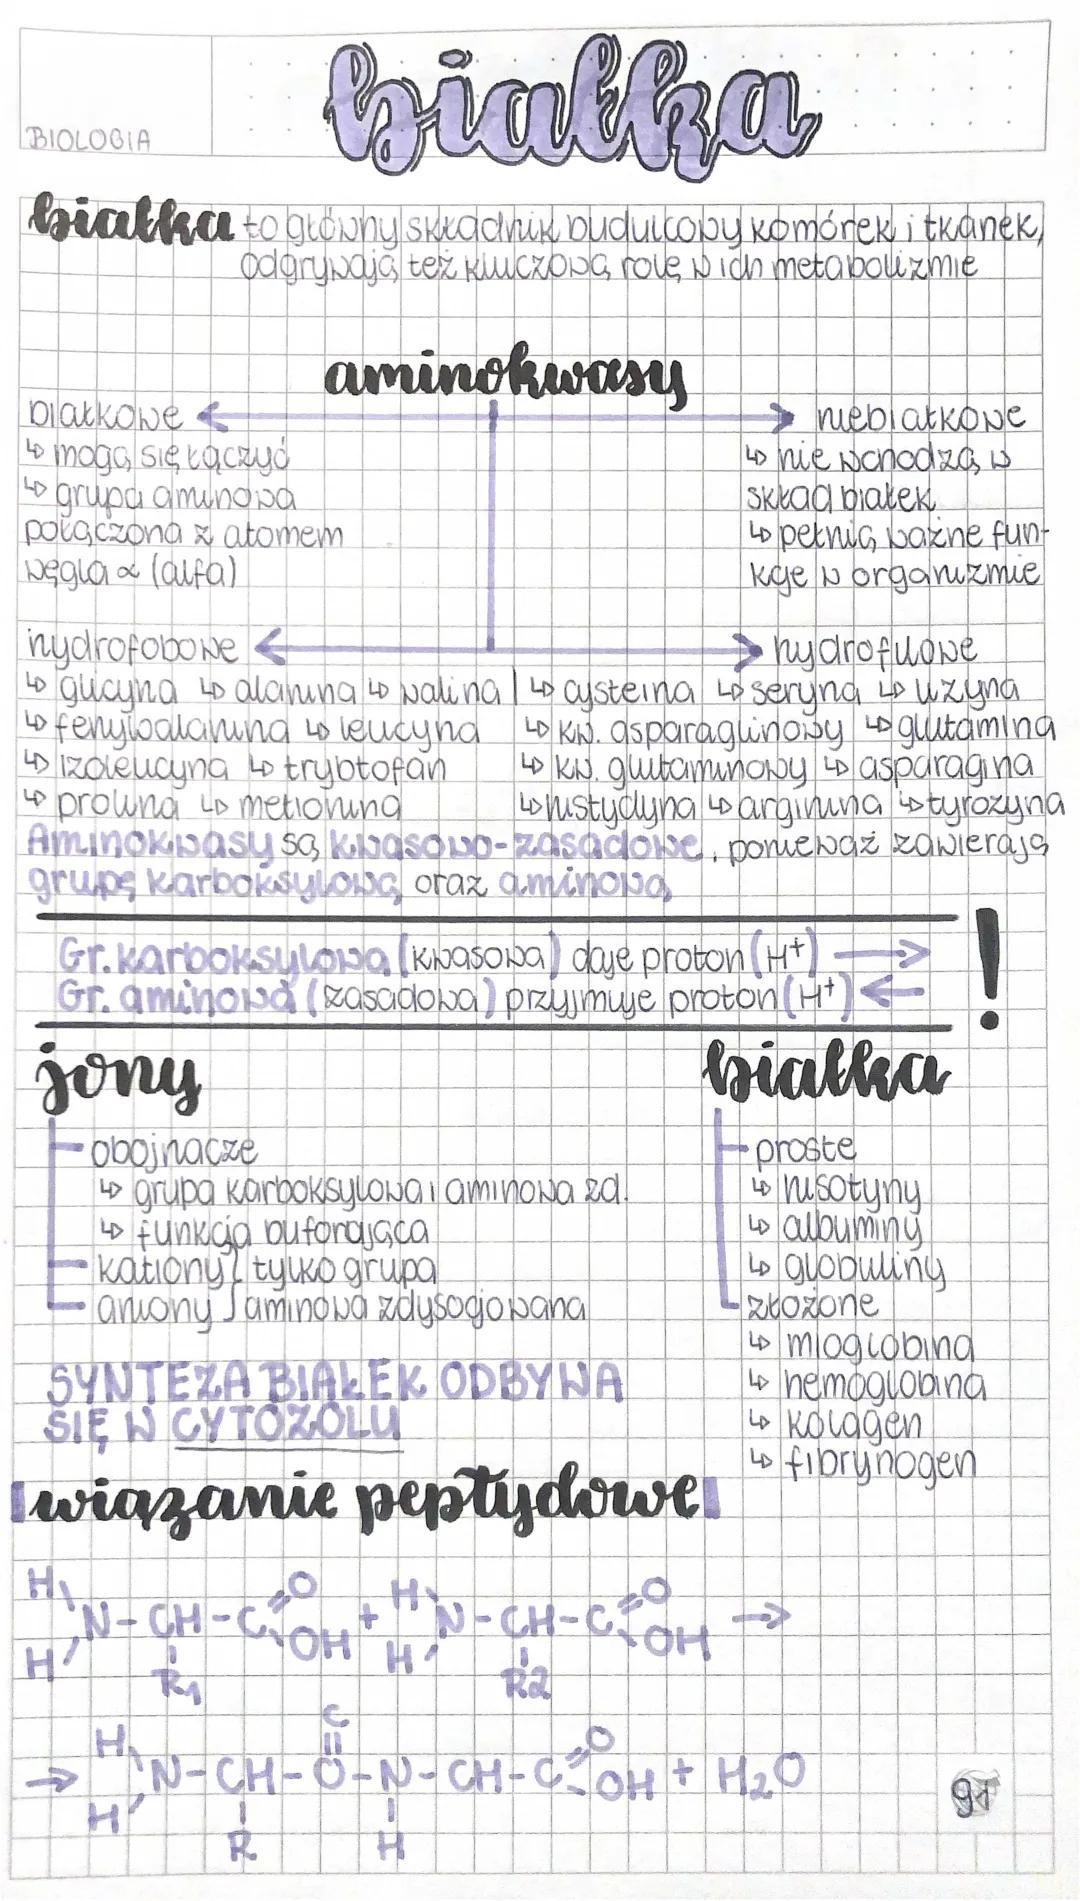 BIOLOGIA
białka
białka to główny składnik budulcowy komórek i tkanek,
odgrywają też kluczową rolę w ich metabolizmie
aminokwasy
białkowe
niebiałkowe
↳ mogą się łączyć
↳ grupa aminowa
połączona z atomem
węgla α (alfa)
↳ nie wchodzą w
skład białek
↳ pełnią ważne fun-
kcje w organizmie
hydrofobowe
hydrofilowe
↳ glicyna ↳ alanina ↳ walina
↳ fenyloalanina ↳ leucyna
↳ izoleucyna ↳ tryptofan
↳ prolina ↳ metionina
↳ cysteina ↳ seryna ↳ lizyna
↳ kw. asparaginowy ↳ glutamina
↳ kw. glutaminowy ↳ asparagina
↳ histydyna ↳ arginina ↳ tyrozyna
Aminokwasy są kwasowo-zasadowe, ponieważ zawierają
grupę karboksylową oraz aminową
Gr. karboksylowa (kwasowa) daje proton (H+) →
Gr. aminowa (zasadowa) przyjmuje proton (H+) ←
!
jony
obojnacze
↳ grupa karboksylowa i aminowa zd.
↳ funkcja buforująca
kationy } tylko grupa
aniony } aminowa zdysocjowana
białka
proste
↳ histotyny
↳ albuminy
↳ globuliny
złożone
↳ mioglobina
↳ hemoglobina
↳ kolagen
↳ fibrynogen
SYNTEZA BIAŁEK ODBYWA
SIĘ W CYTOZOLU
wiązanie peptydowe
H O H O
N-CH-C OH + N-CH-C OH →
H R1 H R2
H C O
→ N-CH-O-N-CH-C OH + H2O
H R H
91